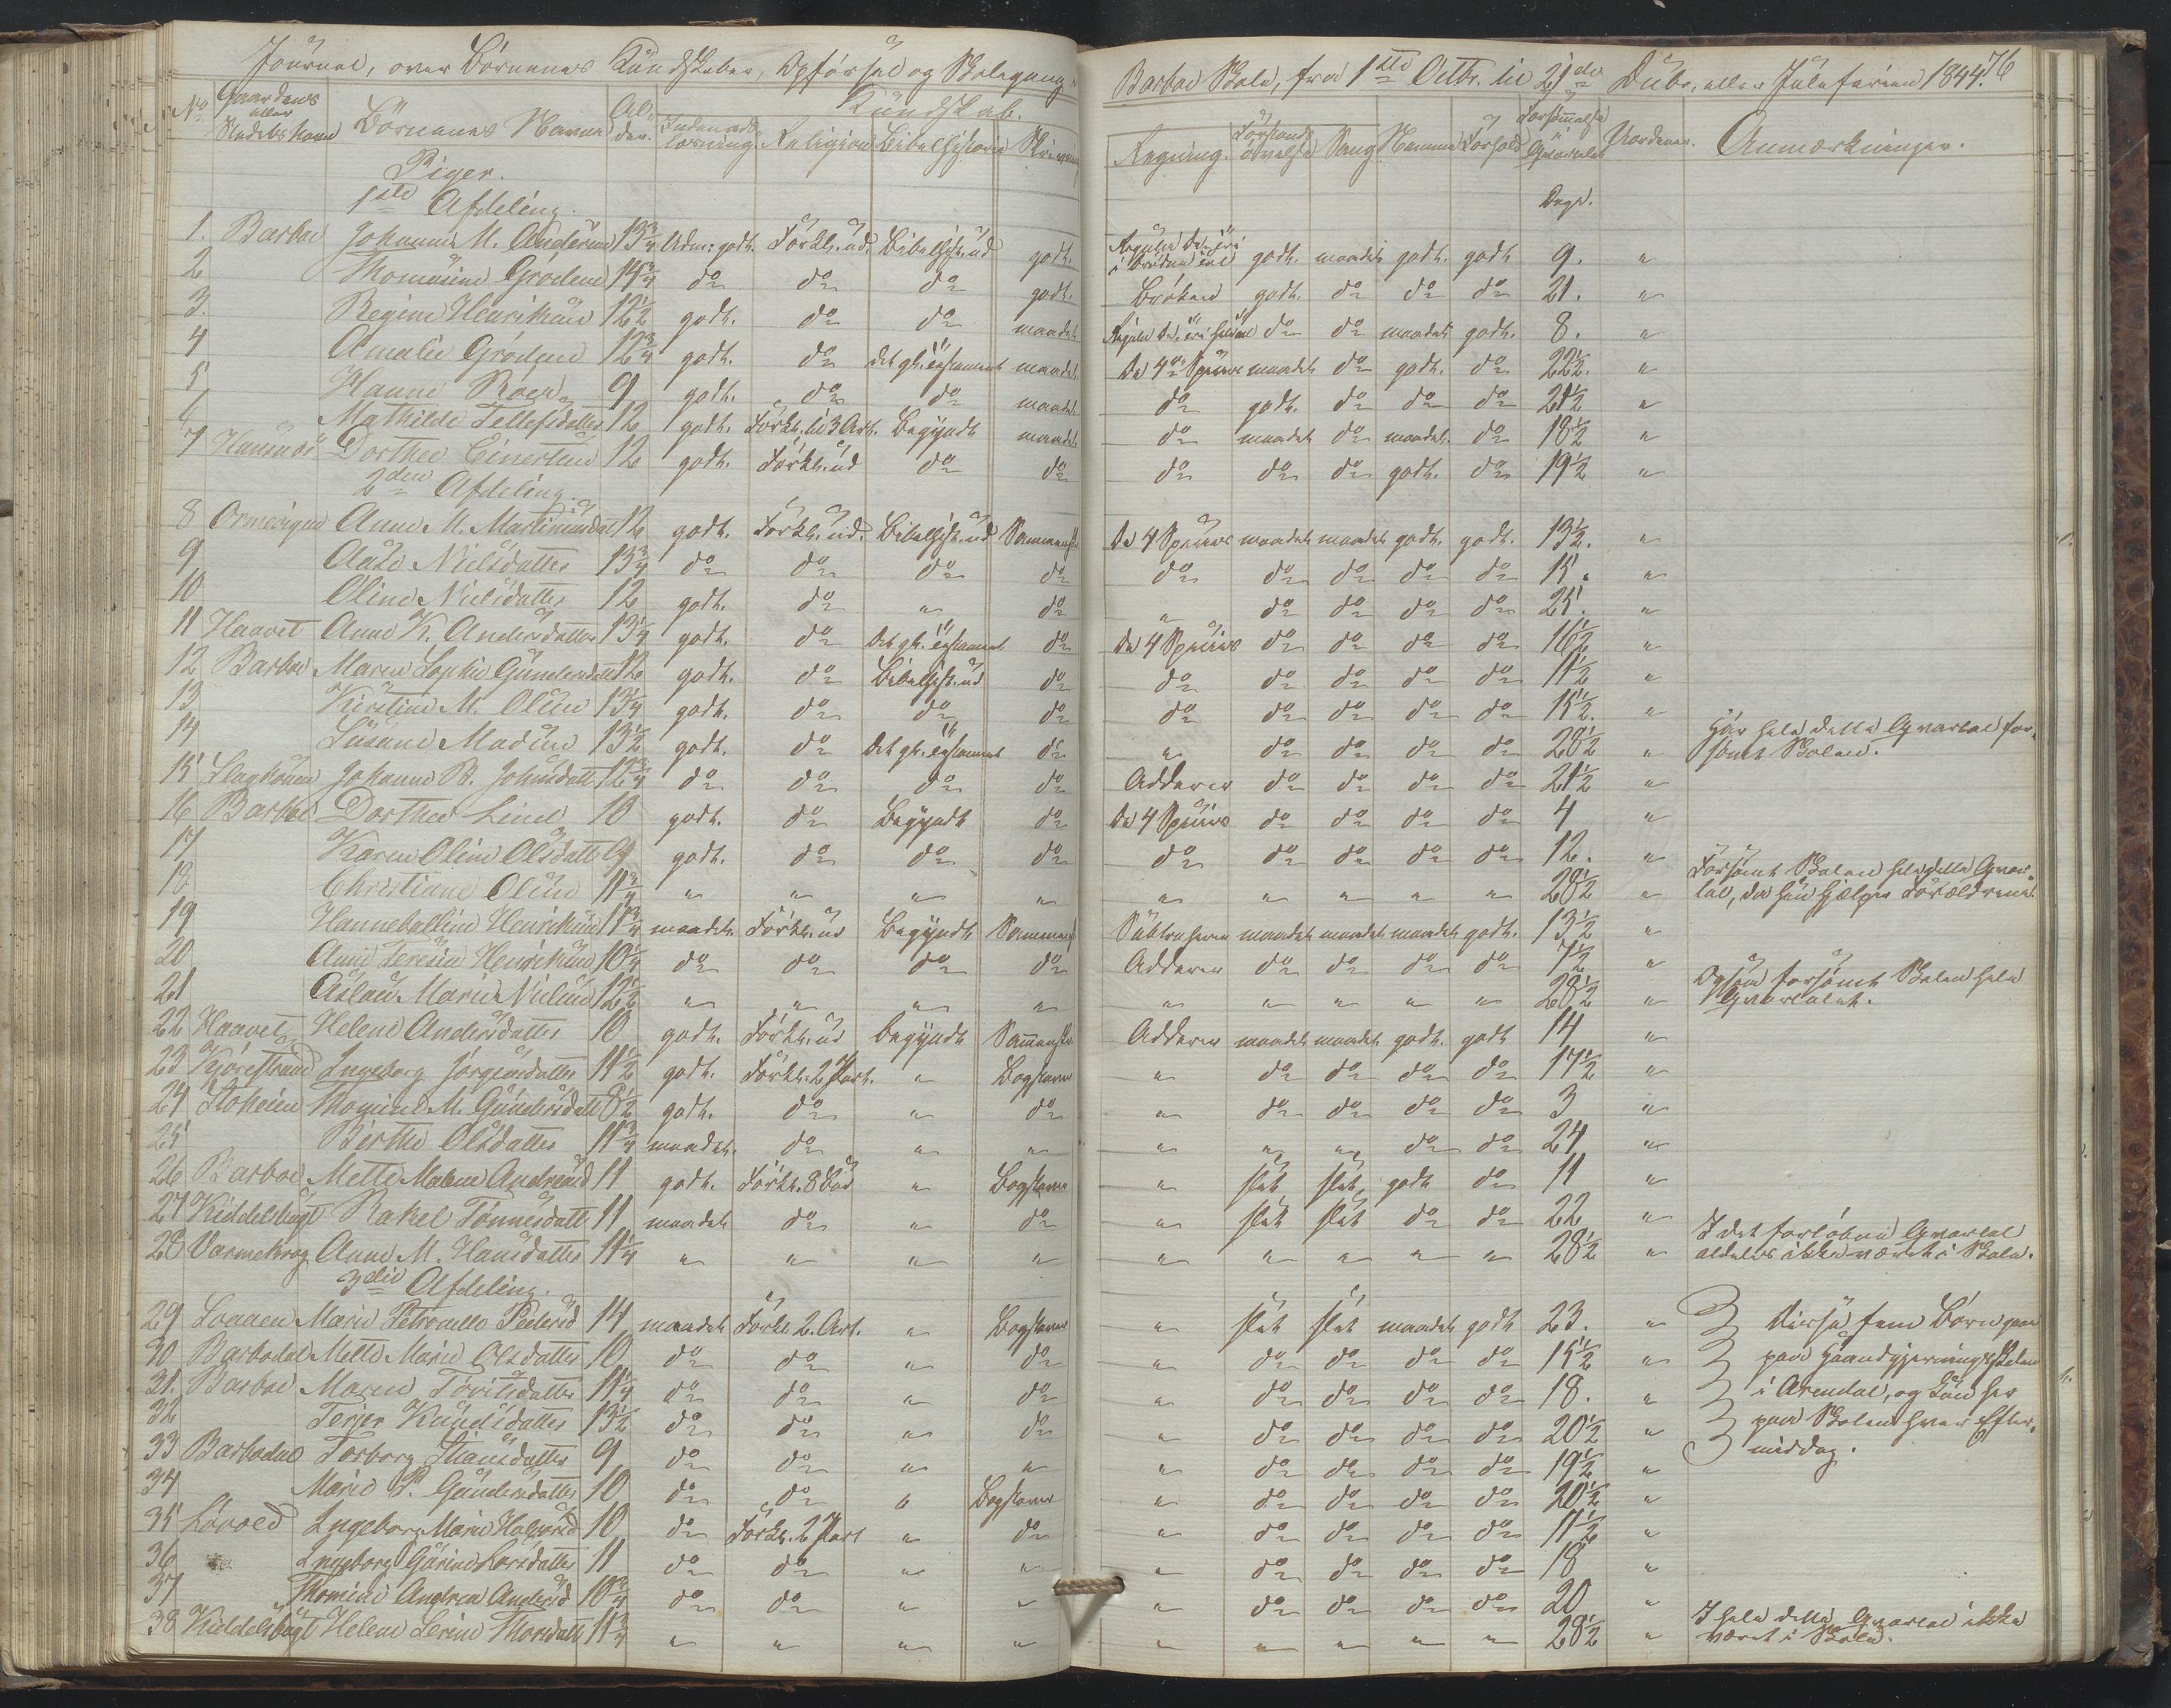 Journal, over Börnenes Kundskaber, Opförsel og Skolegang i
Barboe Skole, fra 1ste Octbr. til 21de Decbr. eller Juleferien 1844. 76
No Gaardens eller Stedets Navn Börnenes Navne Alder. Indenadslæsning Religion Bibelhistorie Skrivning
Kundskab.
Regning. Forstands övelse Sang Nemme Forhold Forsömmelse i Qvartalet Anmærkninger.
Piger.
1ste Afdeling.
Dage.
1. Barboe Johanne M. Andersen 13 3/4 Udm: godt. Forkl. ud. Bibelhist. ud godt. Regula de tri i Bröken godt. maadel. godt. godt 9. "
2 Thomasine Grödem 14 3/4 do do do godt. Bröken godt. do do do 21. "
3. Regine Henriksen 12 1/2 godt. do do maadel. Regula de tri do do maadel. godt. 8. "
4 Amalie Grödem 12 3/4 godt. do det gl. Testament maadel. De 4 Species maadel. do godt. do 22 1/2. "
5 Hanne Roed 9 godt. do do maadel. do godt. do do do 21 1/2 "
6 Mathilde Tellefsdatter 12 godt. Forkl. til 3 Art. Begyndt maadel. do maadel. do maadel. do 18 1/2 "
7 Dorthea Einersen 12 godt. Forkl. ud do do do do do godt. do 19 1/2 "
2den Afdeling.
8 Ormevigen Anne M. Martinusdat 12 godt. Forkl. ud. Bibelhist. ud Sammensk De 4 Species maadel. maadel. godt. godt. 13 1/2. "
9 Aase Nielsdatter 13 3/4 do do do do do do do do do 15. "
10 Oline Nielsdatter 12 godt. do " do " do do do do 25. "
11 Haavet Anne K. Andersdatter 13 1/4 godt. do det gl. Testament do De 4 Species do do do do 16 1/2 "
12 Barboe Maren Sophie Gundersdat 12 godt. do Bibelhist. ud do do do do do do 11 1/2 "
13 Kirstine M. Olsen 13 1/4 godt. do do do do do do do do 15 1/2. "
14 Susane Madsen 13 1/2 godt. do det gl. Testament do " do do do do 28 1/2 " Har hele dette Qvartal forsömt Skolen.
15 Johanne B. Johnsdatt 12 3/4 do do do do Adderer do do do do 21 1/2 "
16 Barboe Dorthea Lind 10 godt. do Begyndt do De 4 Species do do do do 4 "
17 Karen Oline Olsdatt 9 godt. do do do do do do do do 12. "
18. Christiane Olsen 11 3/4 " " " " " " " " " 28 1/2 " Forsömt Skolen hele dette Qvartal, da hun hjælper Forældrene.
19 Hanneballine Henriksen 11 3/4 maadel. Forkl. ud Begyndt Sammensk Subtraherer maadel. maadel. maadel. godt. 13 1/2 "
20 Anne Teresia Henriksen 10 1/4 do do do do Adderer do do do do 7 1/2 "
21 Aslau Marie Nielsen 12 1/2 " " " " " " " " " 28 1/2 " Ogsaa forsömt Skolen hele Qvartalet.
22 Haavet Helene Andersdatter 10 godt. Forkl. ud begyndt Sammensk Adderer maadel. maadel. godt. godt 14 "
23 Ingeborg Jörgensdatter 11 1/2 godt. Forkl. 2 Part. " Bogstaver " do do do do 17 1/2 "
24 Stoheien Thomine M. Gundersdatt 8 1/2 godt. do " do " do do do do 3 "
25 Birthe Olsdatter 11 3/4 maadel. do " " " " " do do 24 "
26 Barboe Mette Malene Andresd 11 godt. Forkl. 8 Bud " Bogstaver " slet slet godt do 11 "
27 Kiddelsbugt Rakel Tönnesdatt 11 maadel. do " do " slet slet do do 22 "
28 Varmekrog Anne M. Hansdatter 11 1/4 " " " " " " " " " 28 1/2 " I det forlöbne Qvartal aldeles ikke været i Skole.
3die Afdeling.
29 Marie Petronelle Pedersd 14 maadel. Forkl. 2. Art. " Bogstaver " slet slet maadel. godt 23. " Disse fem Börn gaae
30 Barbodal Mette Marie Olsdatter 10 do do " do " do do do do 15 1/2 " paa Haandgjerningsskolen
31. Barboe Maren Tovilsdatter 11 1/4 do do " do " do do do do 18. " i Arendal, og saa her
32 Terjer Knudsdatter 13 1/2 do do " do " do do do do 20 1/2 " paa Skolen hver Efter-
33 Barbodal Torborg Hansdatter 9 do do " " " do do do do 19 1/2 " middag.
34 Marie P. Gundersdatter 10 do do " Bogstaver " do do do do 20 1/2 "
35 Lövold Ingeborg Marie Halvorsd 10 do Forkl. 2 Part " do " do do do do 11 1/2 "
36 Ingeborg Gurine Larsdatter 11 do do " " " do do do do 18 "
37 Thomine Andrea Andersd 10 3/4 do do " " " do do do do 20 "
38 Kiddelsbugt Helene Serine Thorsdatt 11 3/4 " " " " " " " " " 28 1/2 " I hele dette Qvartal ikke været i Skole.